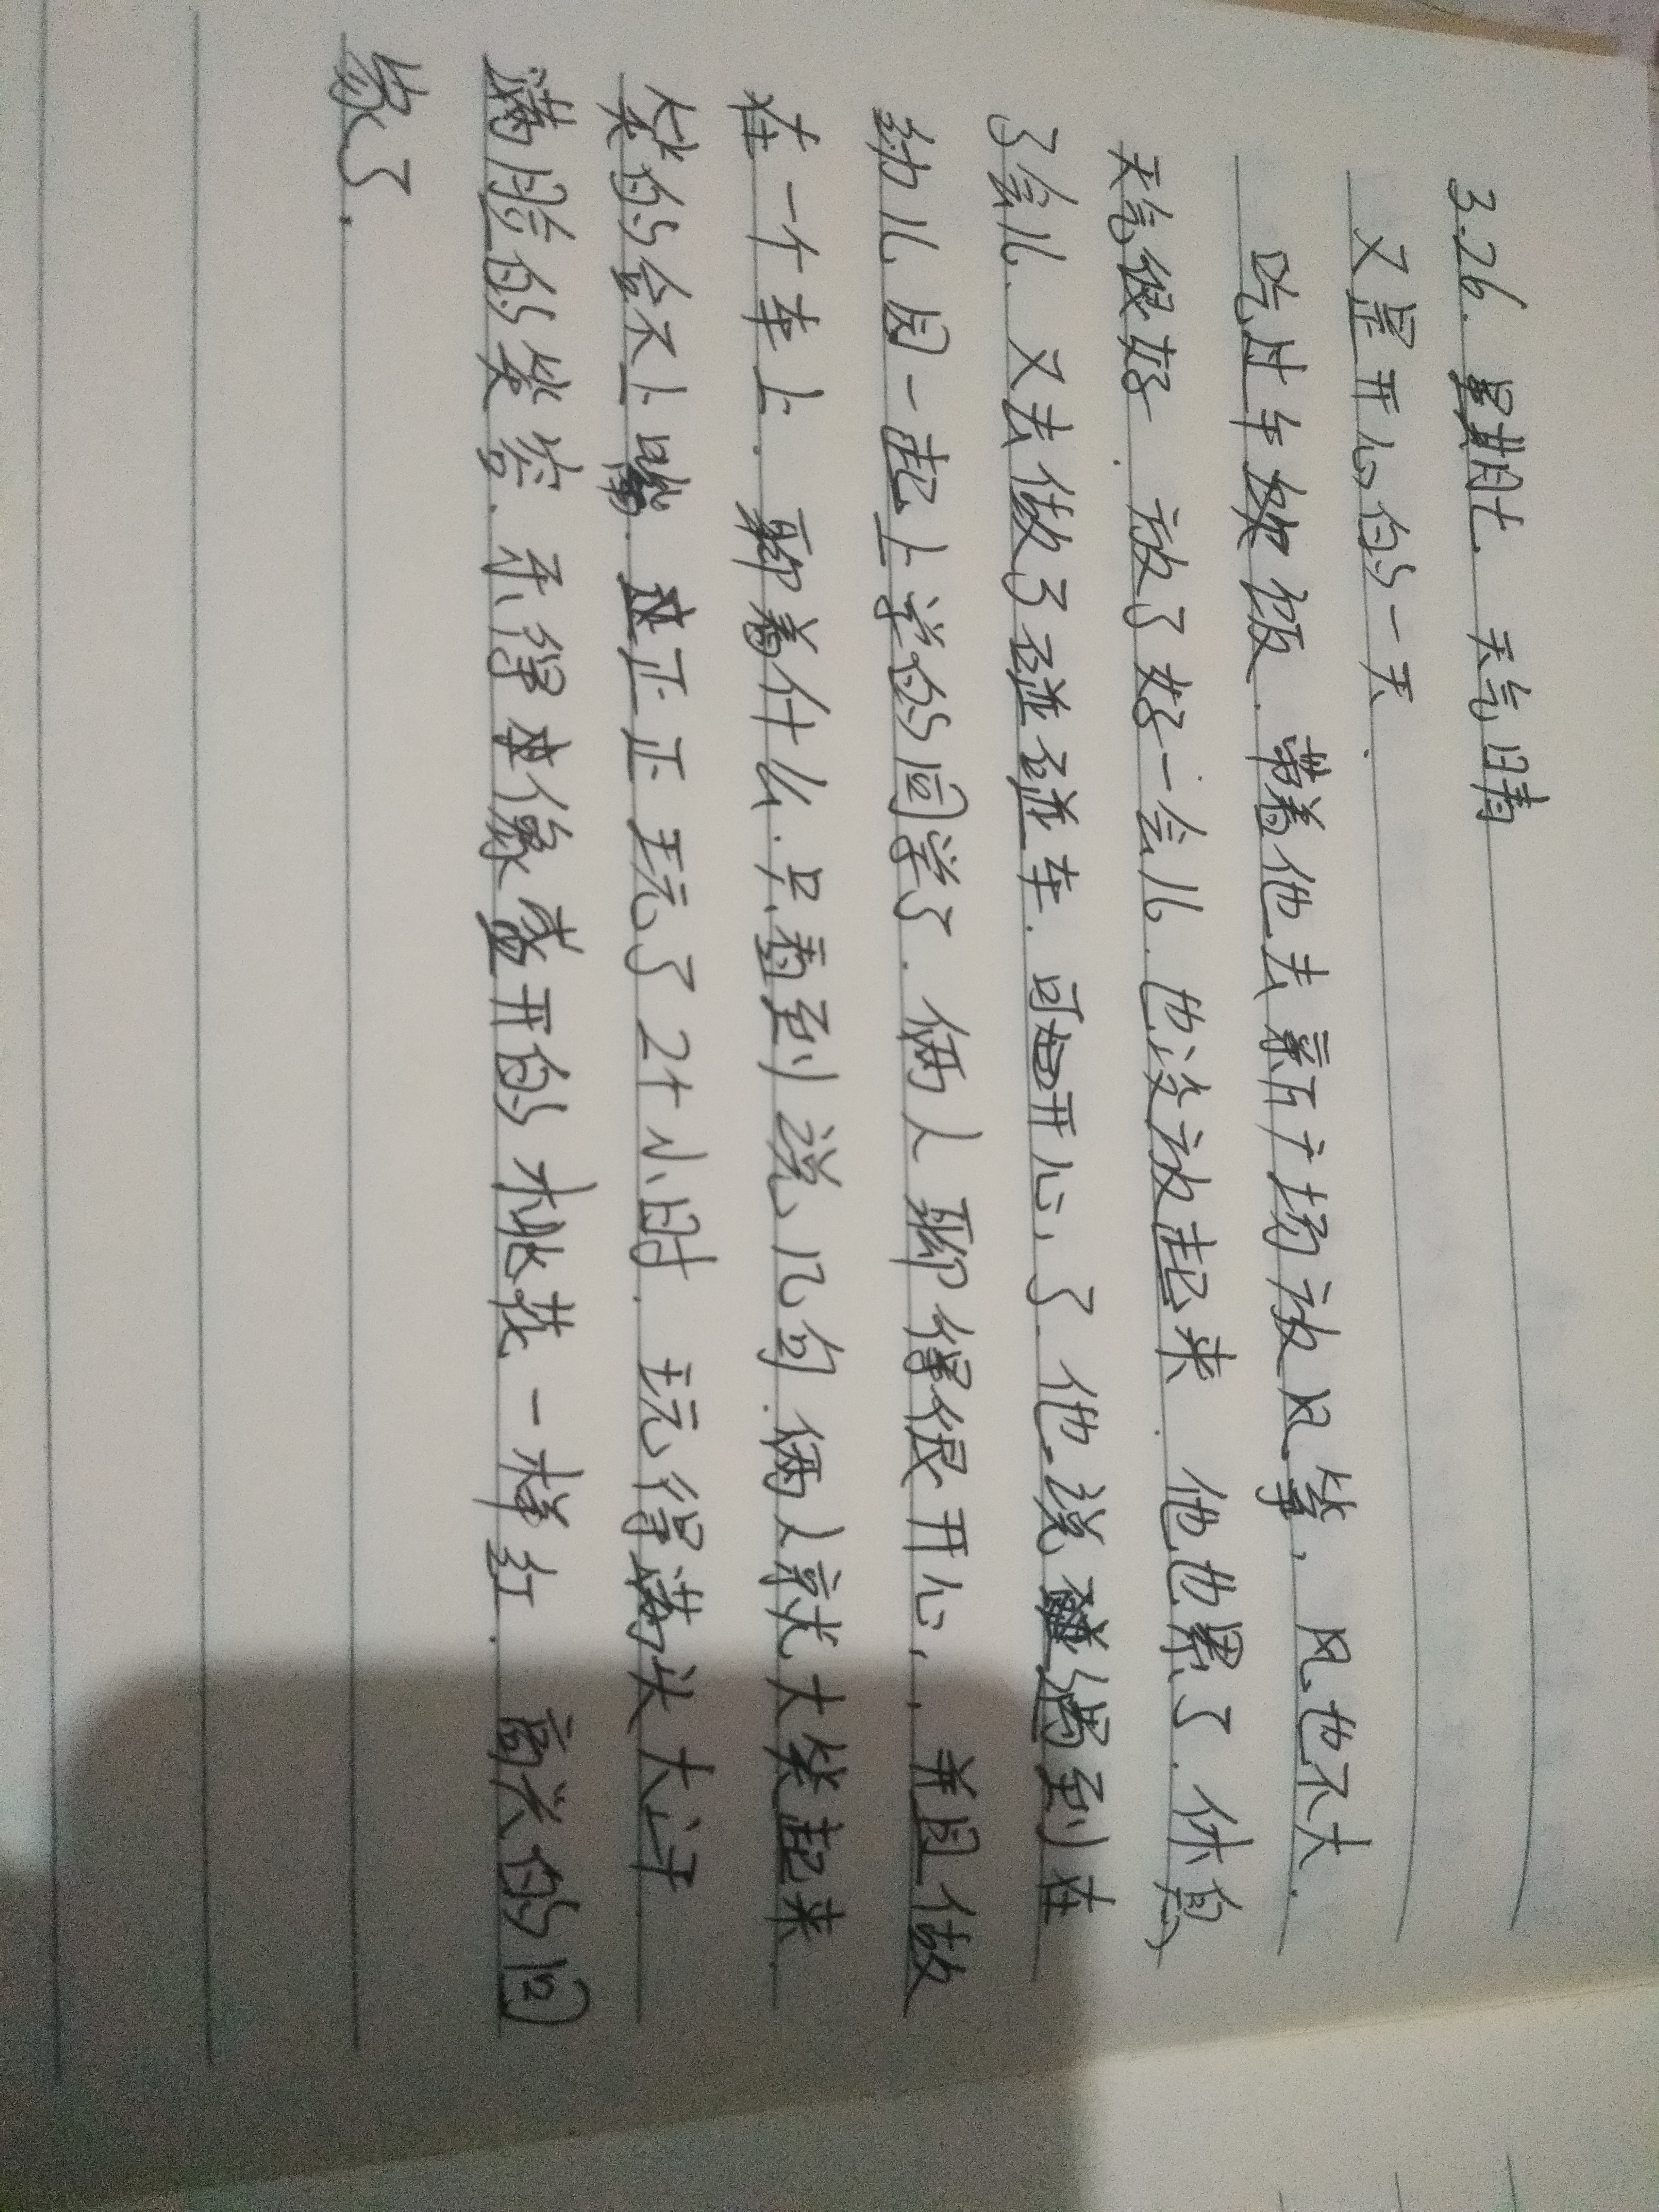 3.26. 星期七. 天气晴
又是开心的一天.
吃过午饭. 带着他去新广场放风筝, 风也不大.
天气很好. 放了好一会儿. 也没放起来. 他也累了. 休息
了会儿. 又去做了碰碰车. 可开心了. 他说遇到在
幼儿园一起上学的同学了. 俩人聊得很开心, 并且做
在一个车上. 聊着什么. 只看到说几句. 俩人就大笑起来
笑的合不上嘴. 正正玩了2个小时. 玩得满头大汗
满脸的笑容. 乐得像盛开的桃花一样红. 高兴的回
家了.